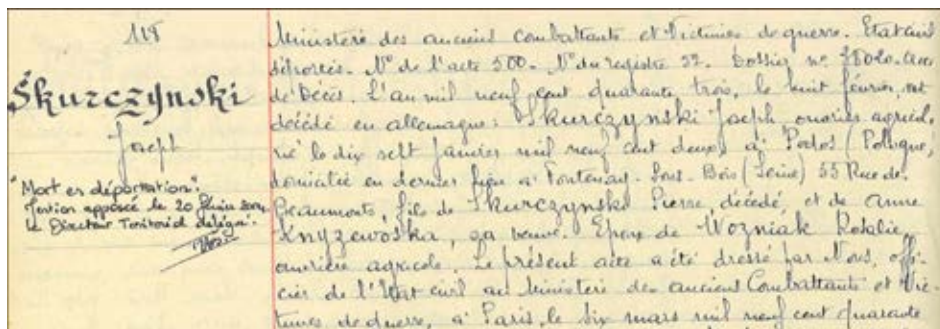 118
Skurczynski
Joseph
"Mort en déportation".
Mention apposée le 20 2004
Le Directeur Territorial délégué.
Ministère des anciens Combattants et Victimes de guerre. Etat civil
déportés. N° de l'acte 500. N° du registre 22. Dossier n°
de Décès. L'an mil neuf cent quarante trois, le huit février, est
décédé en allemagne : Skurczynski Joseph, ouvrier agricole,
né le dix sept Janvier mil neuf cent deux, à (Pologne,
domicilié en dernier lieu à Fontenay-Sous-Bois (Seine) 55 Rue de
Beaumonts, fils de Skurczynski Pierre, décédé, et de Anne
Knyzewoska, sa veuve. Epoux de Wozniak Rosalie,
ouvrière agricole. Le présent acte a été dressé par Nous, offi-
cier de l'Etat civil au Ministère des anciens Combattants et Vic-
times de guerre, à Paris, le six mars mil neuf cent quarante